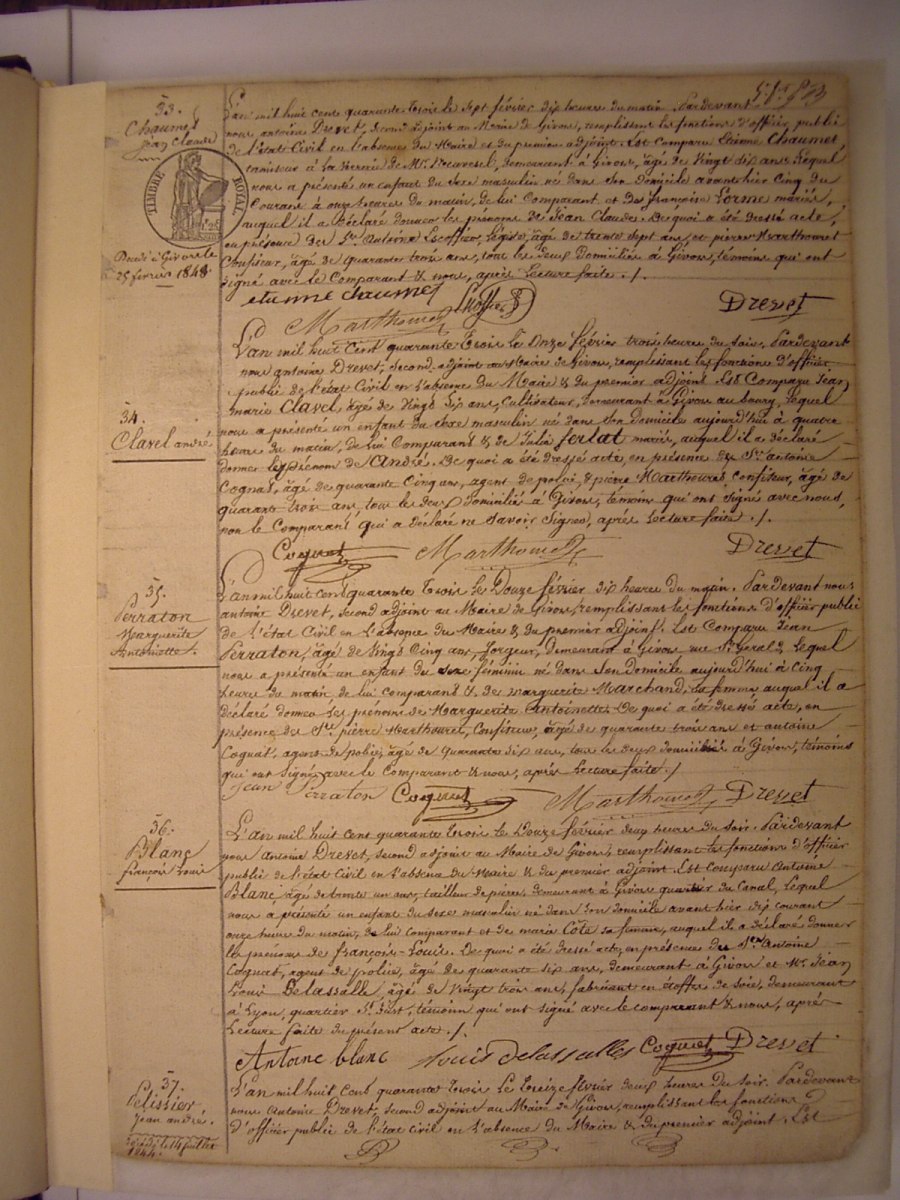 33.
Chaumet
Jean Claude
TIMBRE ROYAL
Décédé à Givors le
25 février 1848
L'an mil huit cent quarante trois le Sept février dix heures du matin. Pardevant
nous antoine Drevet, second adjoint au Maire de Givors, remplissant les fonctions d'officier public
de l'état Civil en l'absence du Maire et du premier adjoint. Est Comparu Etienne Chaumet,
tamiseur à la Verrerie de Mr. demeurant à Givors, âgé de Vingt six ans. Lequel
nous a présenté un enfant du Sexe masculin né dans Son domicile avant hier Cinq du
Courant à onze heures du matin, de lui Comparant et de françoise Lorme mariés,
auquel il a déclaré donner les prénoms de Jean Claude. De quoi a été dressé acte,
en présence des Srs. Antoine Escoffier, Légiste, âgé de trente sept ans, et pierre Marthouret
Confiseur, âgé de quarante trois ans, tous les deux Domiciliés à Givors, témoins qui ont
signé avec le Comparant & nous, après Lecture faite ./.
etienne chaumet Escoffier Drevet
Marthouret
34.
Clavel andré
L'an mil huit Cent quarante trois le Onze février trois heures du Soir, Pardevant
nous antoine Drevet, Second adjoint au Maire de Givors, remplissant les fonctions d'officier
public de l'état Civil en l'absence du Maire & du premier adjoint. Est Comparu Jean
marie Clavel, âgé de Vingt Six ans, Cultivateur, demeurant à Givors au bourg, lequel
nous a présenté un enfant du Sexe masculin né dans Son domicile aujourd'hui à quatre
heures du matin, de lui Comparant & de Julie ferlat mariés, auquel il a déclaré
donner le prénom de André. De quoi a été dressé acte, en présence des Srs. antoine
Cognat, âgé de quarante Cinq ans, agent de police, & pierre Marthouret, Confiseur, âgé de
quarante trois ans, tous les deux domiciliés à Givors, témoins qui ont Signé avec nous,
non le Comparant qui a déclaré ne Savoir Signer, après Lecture faite ./.
Cognat Marthouret Drevet
35.
Perraton
Marguerite
Antoinette.
L'an mil huit Cent quarante trois le Douze février dix heures du matin. Pardevant nous
antoine Drevet, Second adjoint au Maire de Givors, remplissant les fonctions d'officier public
de l'état Civil en l'absence du Maire & du premier adjoint. Est Comparu Jean
Perraton, âgé de Vingt Cinq ans, forgeur, demeurant à Givors rue St. Gérald, lequel
nous a présenté un enfant du sexe féminin né dans Son domicile aujourd'hui à Cinq
heures du matin de lui comparant & de Marguerite Marchand, sa femme auquel il a
déclaré donner les prénoms de Marguerite Antoinette. De quoi a été dressé acte, en
présence des Srs. pierre Marthouret, Confiseur, âgé de quarante trois ans et antoine
Cognat, agent de police, âgé de quarante six ans, tous les deux domiciliés à Givors, témoins
qui ont Signé avec le Comparant & nous, après Lecture faite ./
Jean Perraton Cognat Marthouret Drevet
36.
Blanc
françois Louis
L'an mil huit cent quarante trois le Douze février deux heures du Soir. Pardevant
nous Antoine Drevet, second adjoint au Maire de Givors, remplissant les fonctions d'officier
public de l'état civil en l'absence du Maire & du premier adjoint. Est comparu Antoine
Blanc, âgé de trente un ans, tailleur de pierres, demeurant à Givors quartier du Canal, lequel
nous a présenté un enfant du Sexe masculin né dans Son domicile avant hier dix courant
onze heures du matin, de lui comparant et de marie Côte sa femme, auquel il a déclaré donner
les prénoms de françois-Louis. De quoi a été dressé acte, en présence des Srs. Antoine
Cognat, agent de police, âgé de quarante six ans, demeurant à Givors et Mr. Jean
Louis Delassalle âgé de Vingt trois ans, fabricant en étoffes de soie, demeurant
à Lyon, quartier St. Just, témoins qui ont signé avec le comparant & nous, après
Lecture faite du présent acte ./.
Antoine blanc Louis delassalles Cognat Drevet
37.
Pelissier
Jean andré.
Décédé le 14 juillet
1844.
L'an mil huit Cent quarante trois le Treize février deux heures du Soir. Pardevant
nous Antoine Drevet, Second adjoint au Maire de Givors, remplissant les fonctions
d'officier public de l'état civil en l'absence du Maire & du premier adjoint. Est